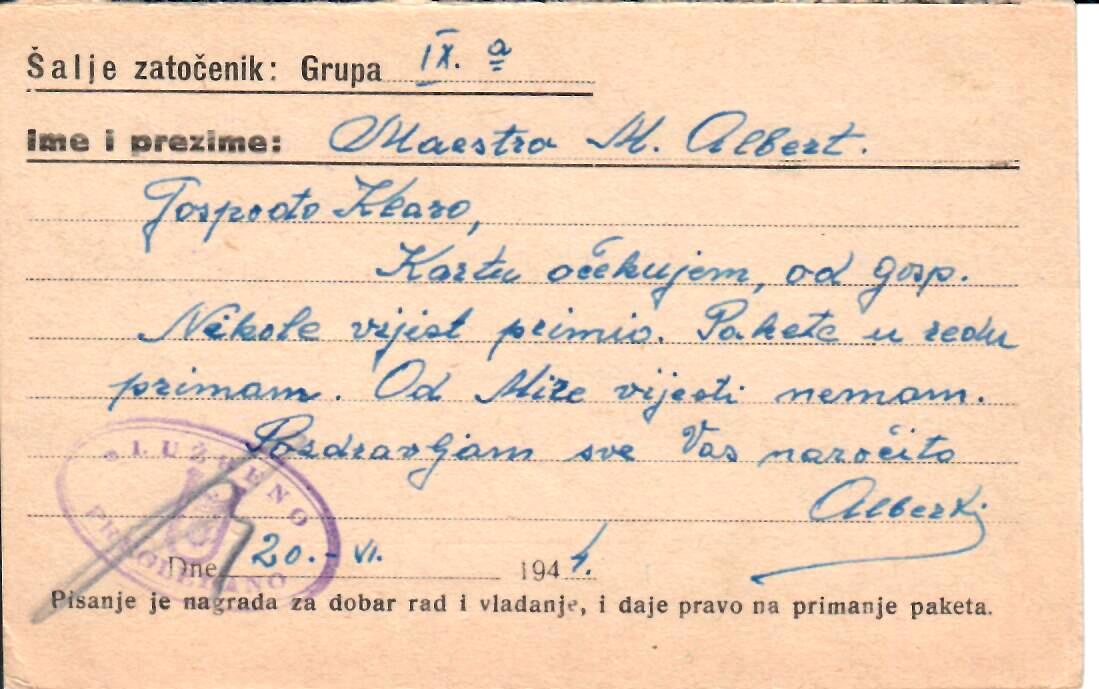 Šalje zatočenik: Grupa IX. a
Ime i prezime: Maestro M. Albert.
Gospođo Klaro,
Kartu očekujem, od gosp.
Nikole vijest primio. Pakete u redu
primam. Od Mire vijesti nemam.
Pozdravljam sve Vas naročito
Albert
SLUŽBENO
PREGLEDANO
Dne 20.- VI. 1944.
Pisanje je nagrada za dobar rad i vladanje, i daje pravo na primanje paketa.